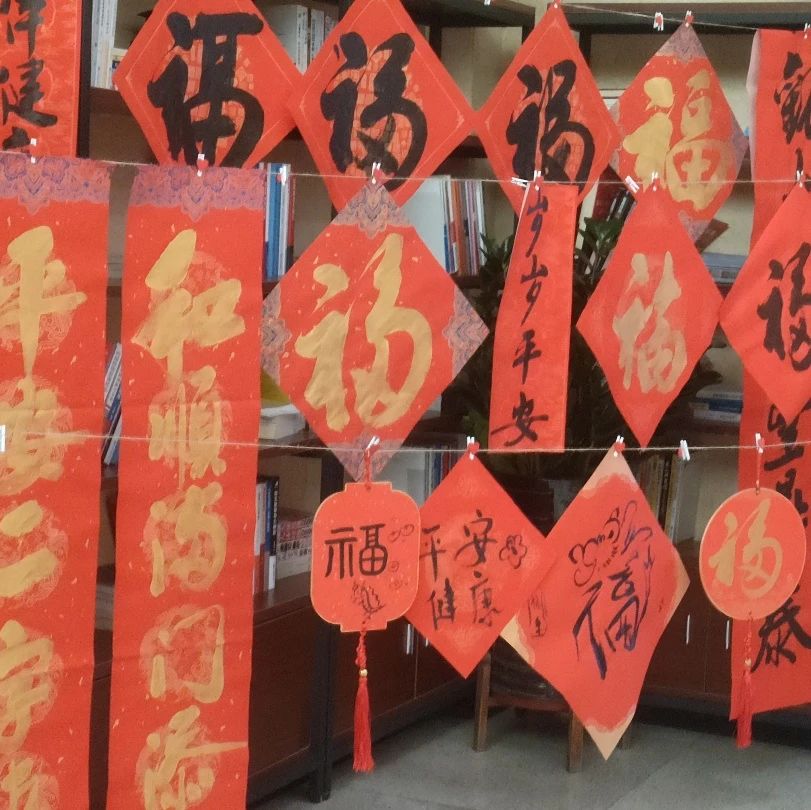 健
福
福
福
福
平安二字
和順满门添
福
岁岁平安
福
福
福
平安
健康
福
福
泰